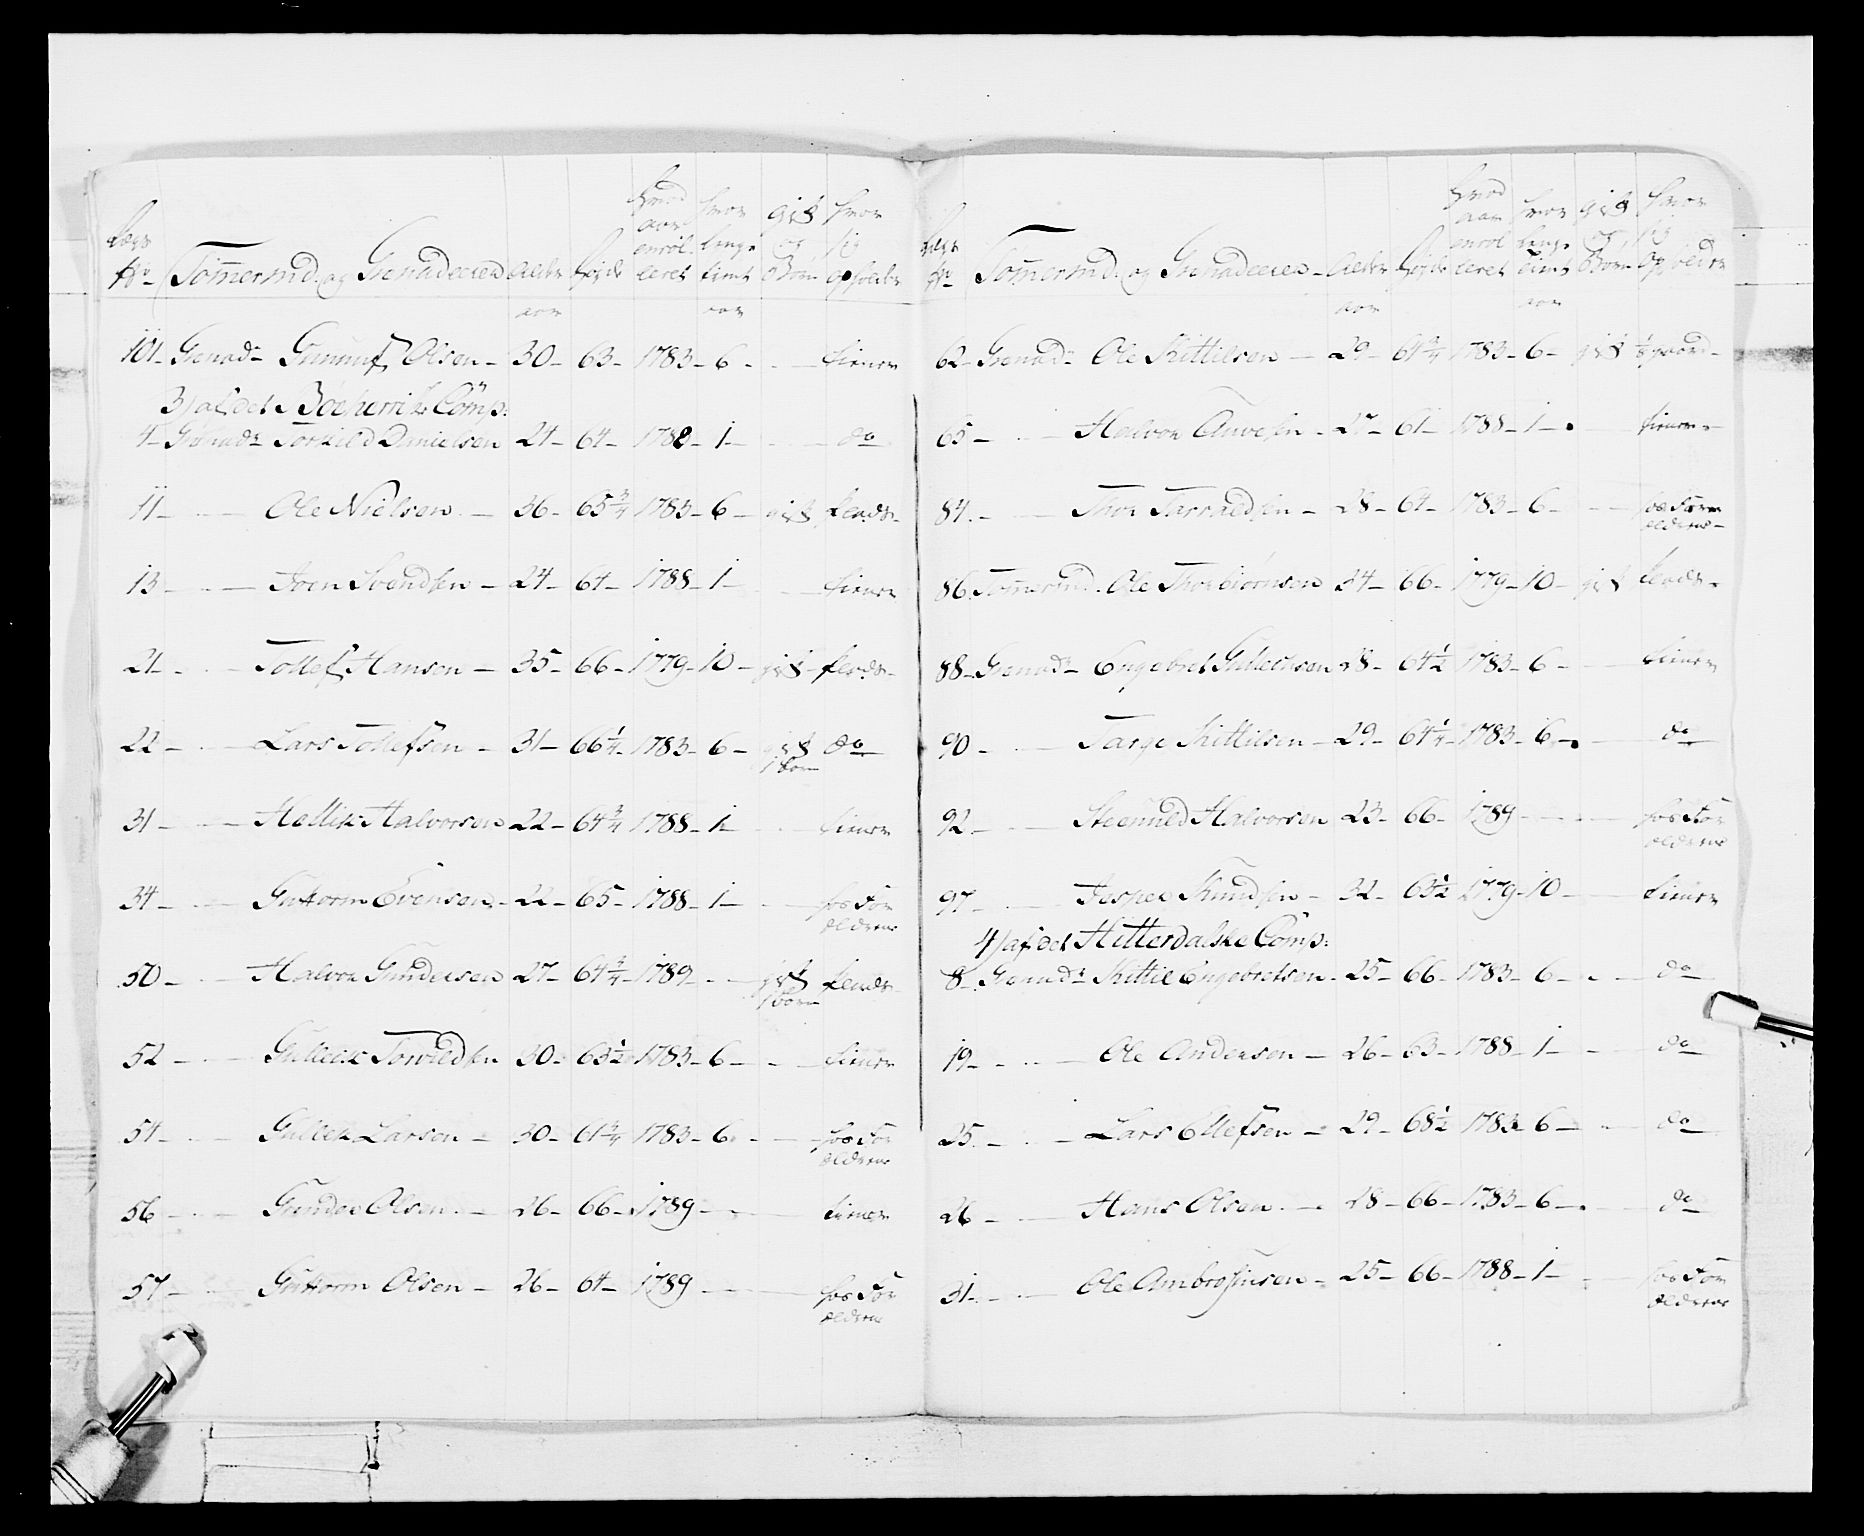 Lægs No Tømermd. og Grenaderer Alder Høyde hvad aar enrolleret hvor lenge tient gift og Børn hvor sig opholder
aar aar
101 Grenadr Gunnuf Olsen 30 63 1783 6 tiener
3) af det Bøeherrits Comp:
4 Grenadr Torkild Danielsen 24 64 1788 1 do
11 Ole Nielsen 36 65 3/4 1783 6 gift
13 Svendsen 24 64 1788 1 tiener
21 Tollef Hansen 35 66 1779 10 gift
22 Lars Tollefsen 31 66 1/4 1783 6 gift 1 barn do
31 Hellik Halvorsen 22 64 3/4 1788 1 tiener
34 Guttorm Evensen 22 65 1788 1 hos Forældrene
50 Halvor Gundersen 27 64 3/4 1789 gift 1 barn
52 Gullek 30 63 1/2 1783 6 tiener
54 Gullek Larsen 30 61 3/4 1783 6 hos Forældrene
56 Gunder Olsen 26 66 1789 tiener
57 Guttorm Olsen 26 64 1789 hos Forældrene
Lægs No Tømermd. og Grenaderer Alder Høyde hvad aar enrolleret hvor lenge tient gift og Børn hvor sig opholder
aar aar
62 Grenadr Ole Kittilsen 29 61 3/4 1783 6 gift
65 Halvor 27 61 1788 1 tiener
84 Thor 28 64 1783 6 hos Forældrene
86 Tømermd. Ole Thorbiørnsen 34 66 1779 10 gift
88 Grenadr Engebret Gullechsen 28 64 1/2 1783 6 tiener
90 Targe Kittilsen 29 64 1/4 1783 6 do
92 Halvorsen 23 66 1789 hos Forældrene
97 Jesper Knudsen 32 63 1/2 1779 10 tiener
4) af det Hitterdalske Comp:
8 Grenadr Kittil Engebretsen 25 66 1783 6 do
19 Ole Andersen 26 63 1788 1 do
25 Lars Ellefsen 29 68 1/2 1783 6 do
26 Hans Olsen 28 66 1783 6 do
31 Ole Ambrosiusen 25 66 1788 1 hos Forældrene